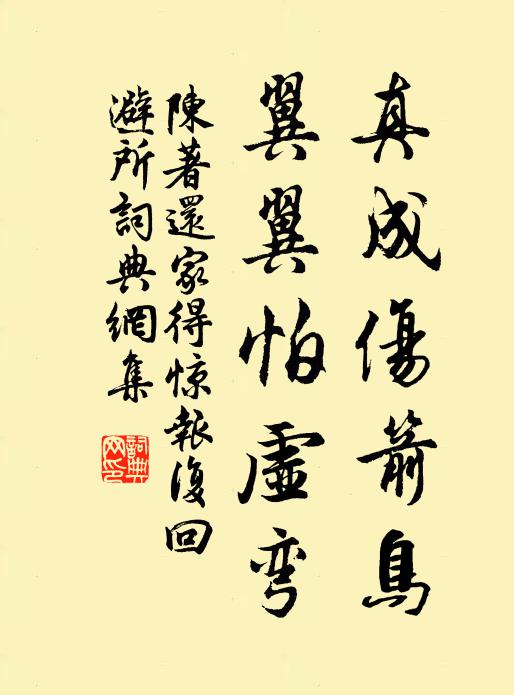 真成傷箭鳥
翼翼怕虛弯
陳著還家得惊報復回
避所詞典網集
詞典网印